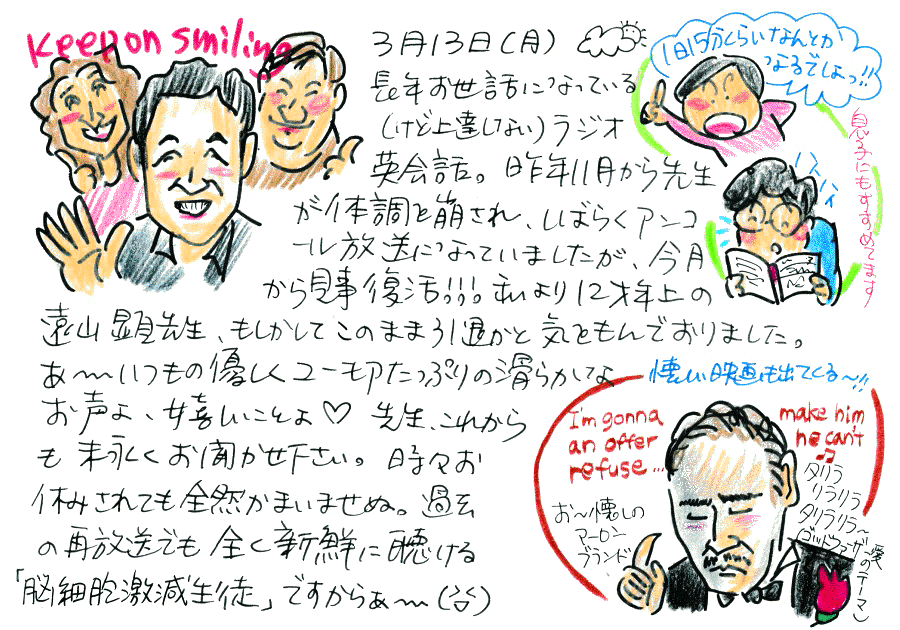 Keep on smiling
3月13日(月)
長年お世話になっている
(けど上達しない)ラジオ
英会話。昨年11月から先生
が体調を崩され、しばらくアンコ
ール放送になっていましたが、今月
から見事復活!!! 私より12才年上の
遠山顕先生、もしかしてこのまま引退かと気をもんでおりました。
あ〜いつもの優しくユーモアたっぷりの滑らかなよ
お声よ、嬉しいことよ♡ 先生、これから
も末永くお聞かせ下さい。時々お
休みされても全然かまいませぬ。過去
の再放送でも全く新鮮に聴ける
「脳細胞激減生徒」ですからぁ〜(谷)
1日15分くらいなんとか
なるでしょっ!!
息子にもすすめてます
懐しい映画も出てくる〜!!
I'm gonna make him
an offer he can't
refuse...
お〜懐しの
マーロン
ブランド
♫
タリラ
リラリラ
タリラリラ〜
(ゴッドファーザー愛のテーマ)